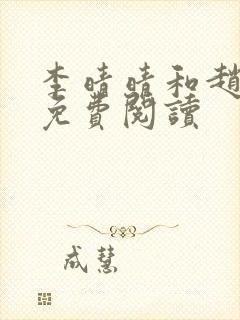 李晴晴和趙
免費閱讀
成慧